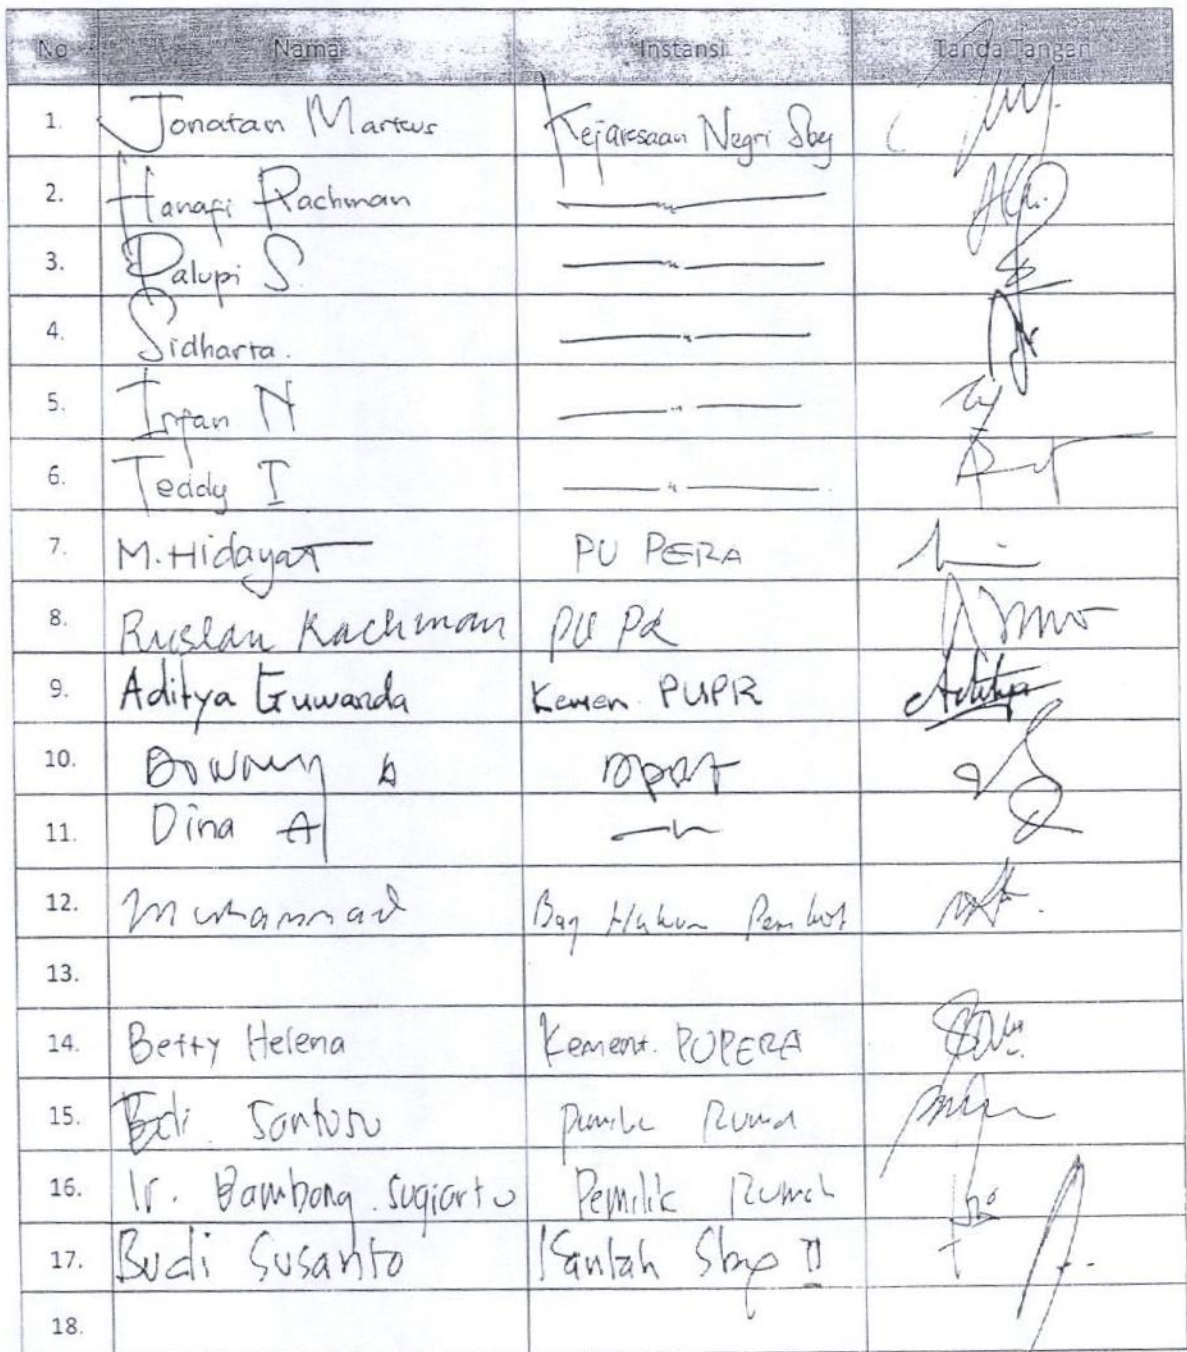 No Nama Instansi Tanda Tangan
1. Jonatan Markus Kejaksaan Negri Sby
2. Hanafi Rachman —〃—
3. Palupi S. —〃—
4. Sidharta. —〃—
5. Irfan N —〃—
6. Teddy I —〃—
7. M. Hidayat PU PERA
8. Ruslan Rachman PU PR
9. Aditya Guwanda Kemen PUPR Aditya
10.
11. Dina A —〃—
12. Muhammad Bag Hukum Pemkot
13.
14. Betty Helena Kement. PUPERA
15. Santoso
16. Ir. Bambang. Sugiarto Pemilik Rumah
17. Budi Susanto Kantah Sby II
18.